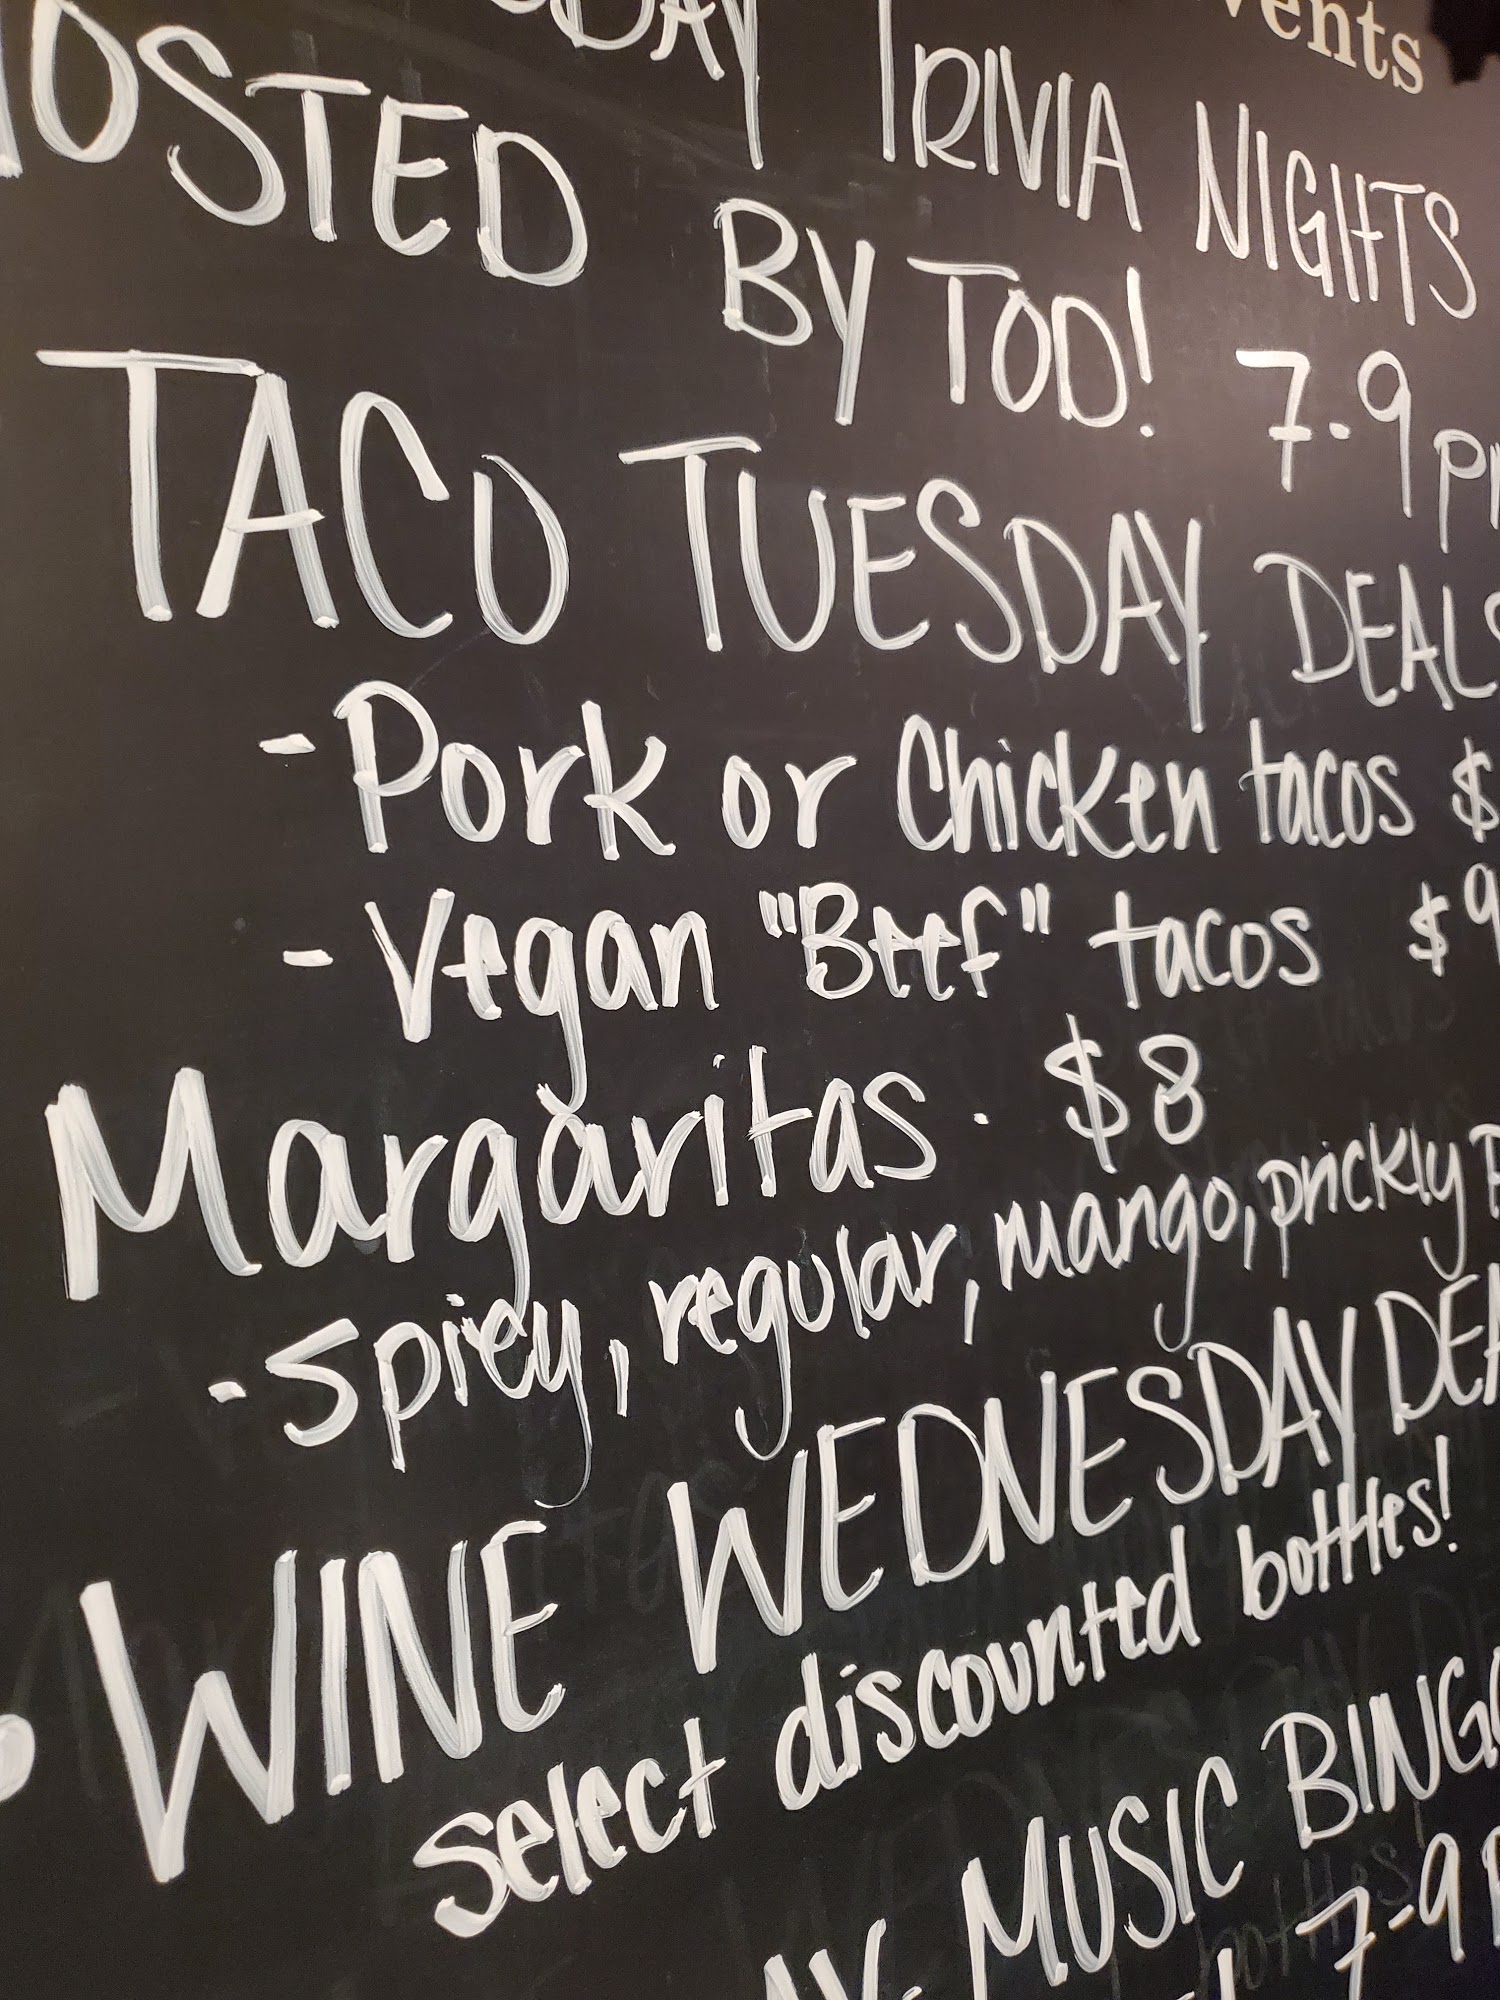 TRIVIA NIGHTS
HOSTED BY TOD! 7-9
TACO TUESDAY DEALS
- Pork or Chicken tacos $
- Vegan "Beef" tacos $9
Margaritas - $8
- spicy, regular, mango, prickly
• WINE WEDNESDAY DEA
select discounted bottles!
MUSIC BINGO
7-9